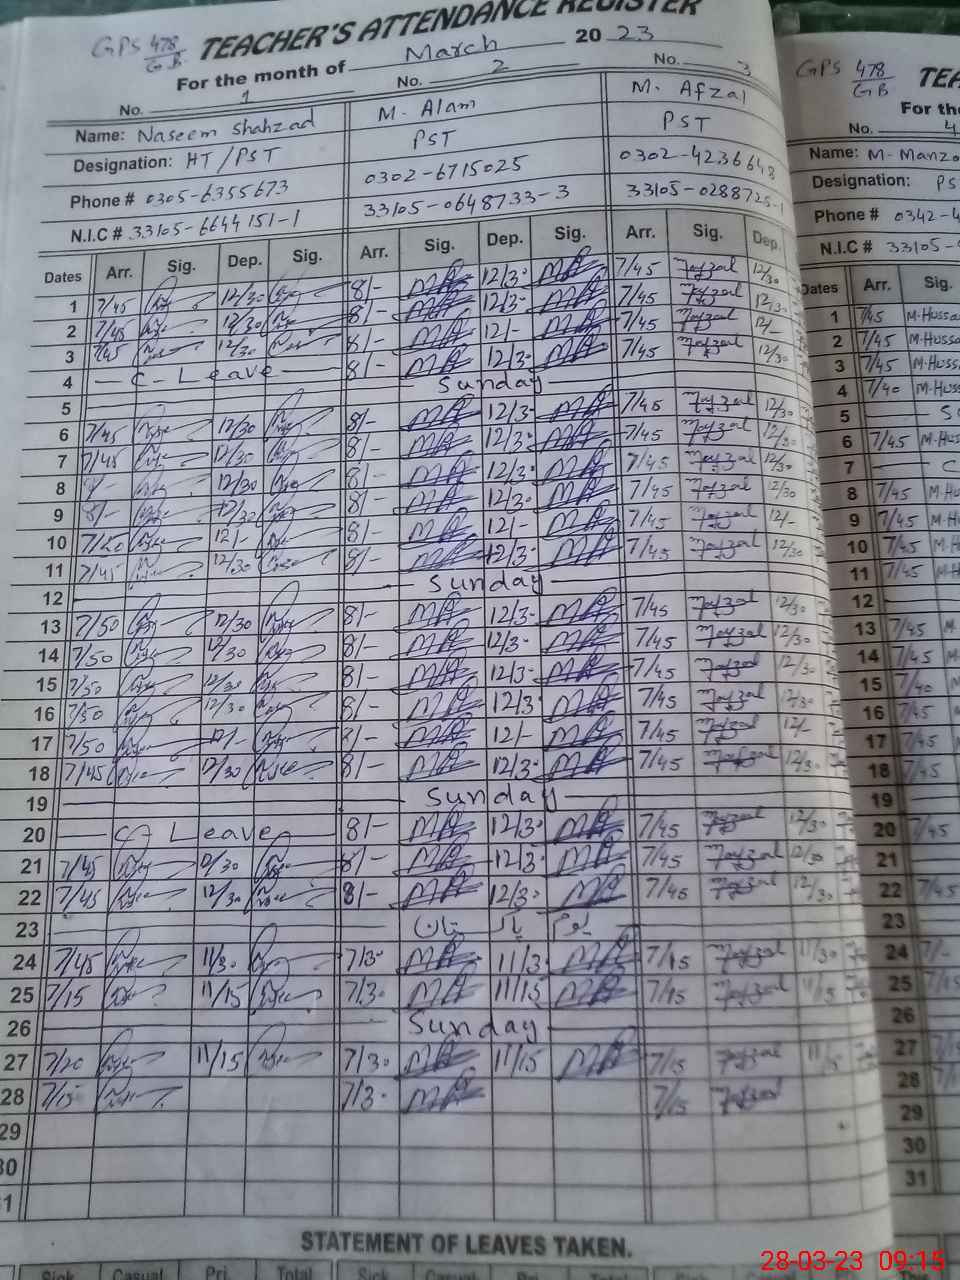 GPS 478/GB TEACHER'S ATTENDANCE REGISTER
For the month of March 20 23
No. 1 No. 2 No. 3
Name: Naseem Shahzad M. Alam M. Afzal
Designation: HT/PST PST PST
Phone # 0305-6355673 0302-6715025 0302-4236643
N.I.C # 33105-6644151-1 33105-0648733-3 33105-0288725-1
Dates Arr. Sig. Dep. Sig. Arr. Sig. Dep. Sig. Arr. Sig. Dep.
1 7/45 12/30 8/- 12/3- 7/45 Mafzal 12/30
2 7/45 12/30 8/- 12/3- 7/45 Mafzal 12/30
3 7/45 12/30 8/- 12/- 7/45 Mafzal 12/-
4 C- Leave 8/- 12/3- 7/45 Mafzal 12/30
5 Sunday
6 7/45 12/30 8/- 12/3- 7/45 Mafzal 12/30
7 7/45 12/30 8/- 12/3- 7/45 Mafzal 12/30
8 8/- 12/30 8/- 12/3- 7/45 Mafzal 12/30
9 8/- 12/30 8/- 12/3- 7/45 Mafzal 12/30
10 7/50 12/- 8/- 12/- 7/45 Mafzal 12/-
11 7/45 12/30 8/- 12/3- 7/45 Mafzal 12/30
12 Sunday
13 7/50 12/30 8/- 12/3- 7/45 Mafzal 12/30
14 7/50 12/30 8/- 12/3- 7/45 Mafzal 12/30
15 7/50 12/30 8/- 12/3- 7/45 Mafzal 12/30
16 7/50 12/30 8/- 12/3- 7/45 Mafzal 12/30
17 7/50 12/- 8/- 12/- 7/45 Mafzal 12/-
18 7/45 12/30 8/- 12/3- 7/45 Mafzal 12/30
19 Sunday
20 Leave 8/- 12/3- 7/45 Mafzal 12/30
21 7/45 12/30 8/- 12/3- 7/45 Mafzal 12/30
22 7/45 12/30 8/- 12/3- 7/45 Mafzal 12/30
23 یوم پاکستان
24 7/45 11/30 7/3- 11/3- 7/15 Mafzal 11/30
25 7/15 11/15 7/3- 11/15 7/15 Mafzal 11/15
26 Sunday
27 7/20 11/15 7/3- 11/15 7/15 Mafzal 11/15
28 7/15 7/3- 7/15 Mafzal
29
30
31
STATEMENT OF LEAVES TAKEN.
Sick Casual Pri. Total Sick Casual Pri. Total Sick
GPS 478/GB TEA
For the
No. 4
Name: M. Manzo
Designation: PS
Phone # 0342-4
N.I.C # 33105-
Dates Arr. Sig.
1 7/45 M.Hussa
2 7/45 M.Hussa
3 7/45 M.Huss
4 7/40 M.Hus
5 S
6 7/45 M.Hus
7 C
8 7/45 M.H
9 7/45 M.H
10 7/45 M.H
11 7/45 M.H
12
13 7/45 M.
14 7/45 M
15 7/40 M
16 7/45
17 7/45
18 7/45
19
20 7/45
21
22 7/45
23
24 7/-
25 7/15
26
27
28
29
30
31
28-03-23 09:15